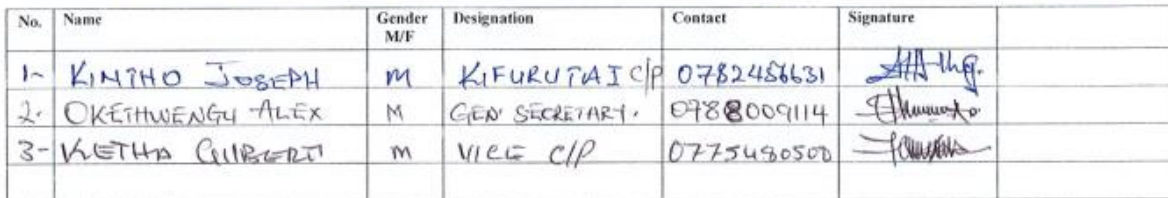 No. Name Gender M/F Designation Contact Signature
1- KINTHO JOSEPH M KIFURUTA I C/P 0782456631
2. OKETHWENGU ALEX M GEN SECRETARY. 0788009114
3- KETHA GILBERT M VICE C/P 0775480500